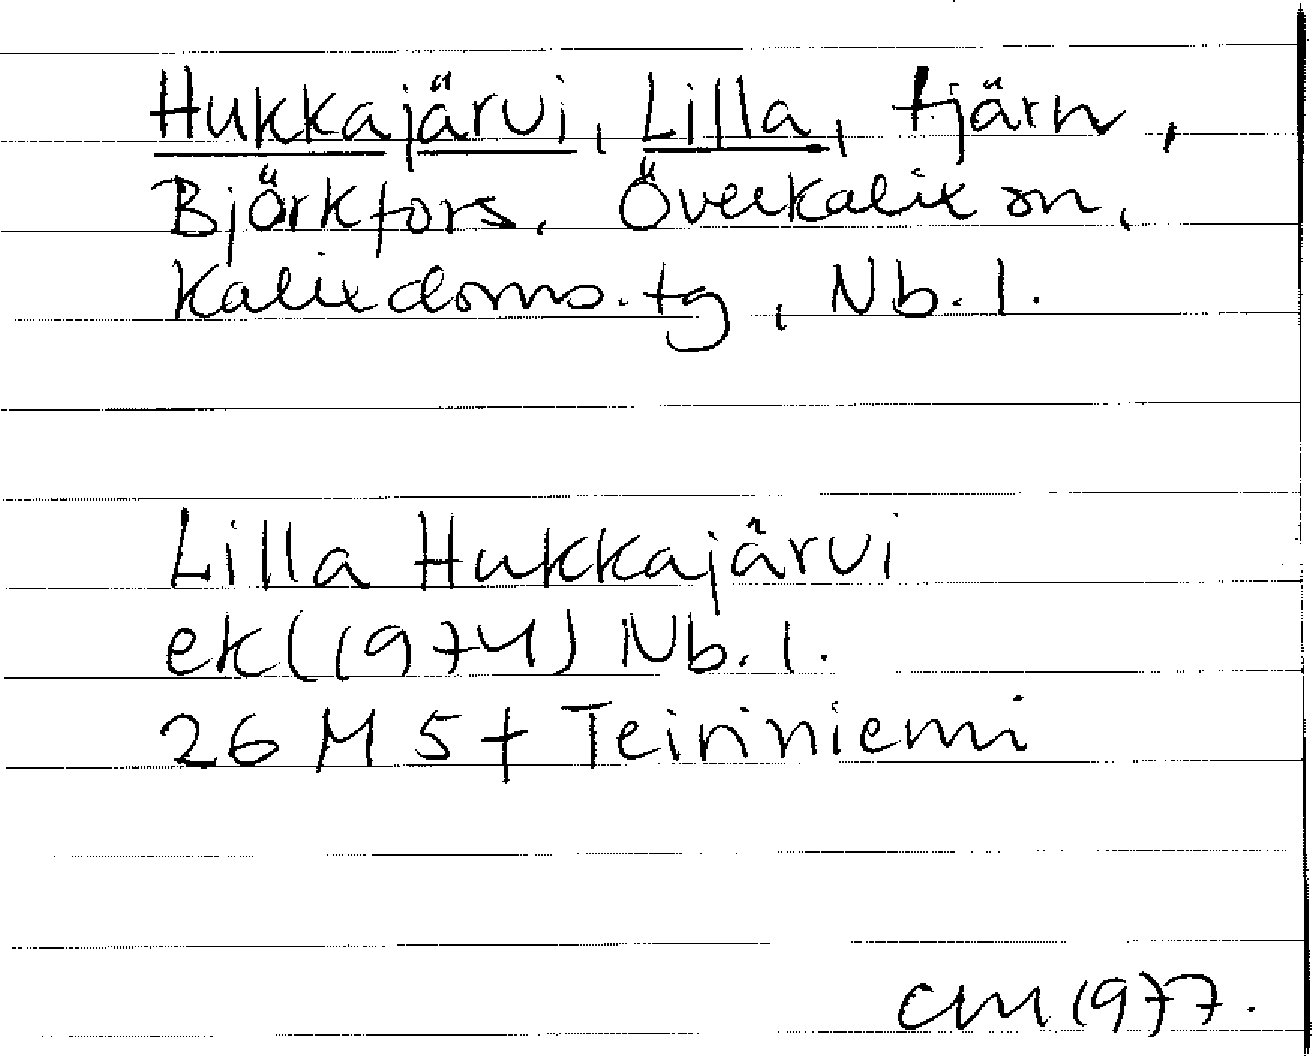 Hukkajärvi, Lilla, tjärn,
Björkfors, Överkalix sn,
Kalix doms. tg, Nb. l.
Lilla Hukkajärvi
ek (1974) Nb. l.
26 M 5 f Teiriniemi
CM 1977.